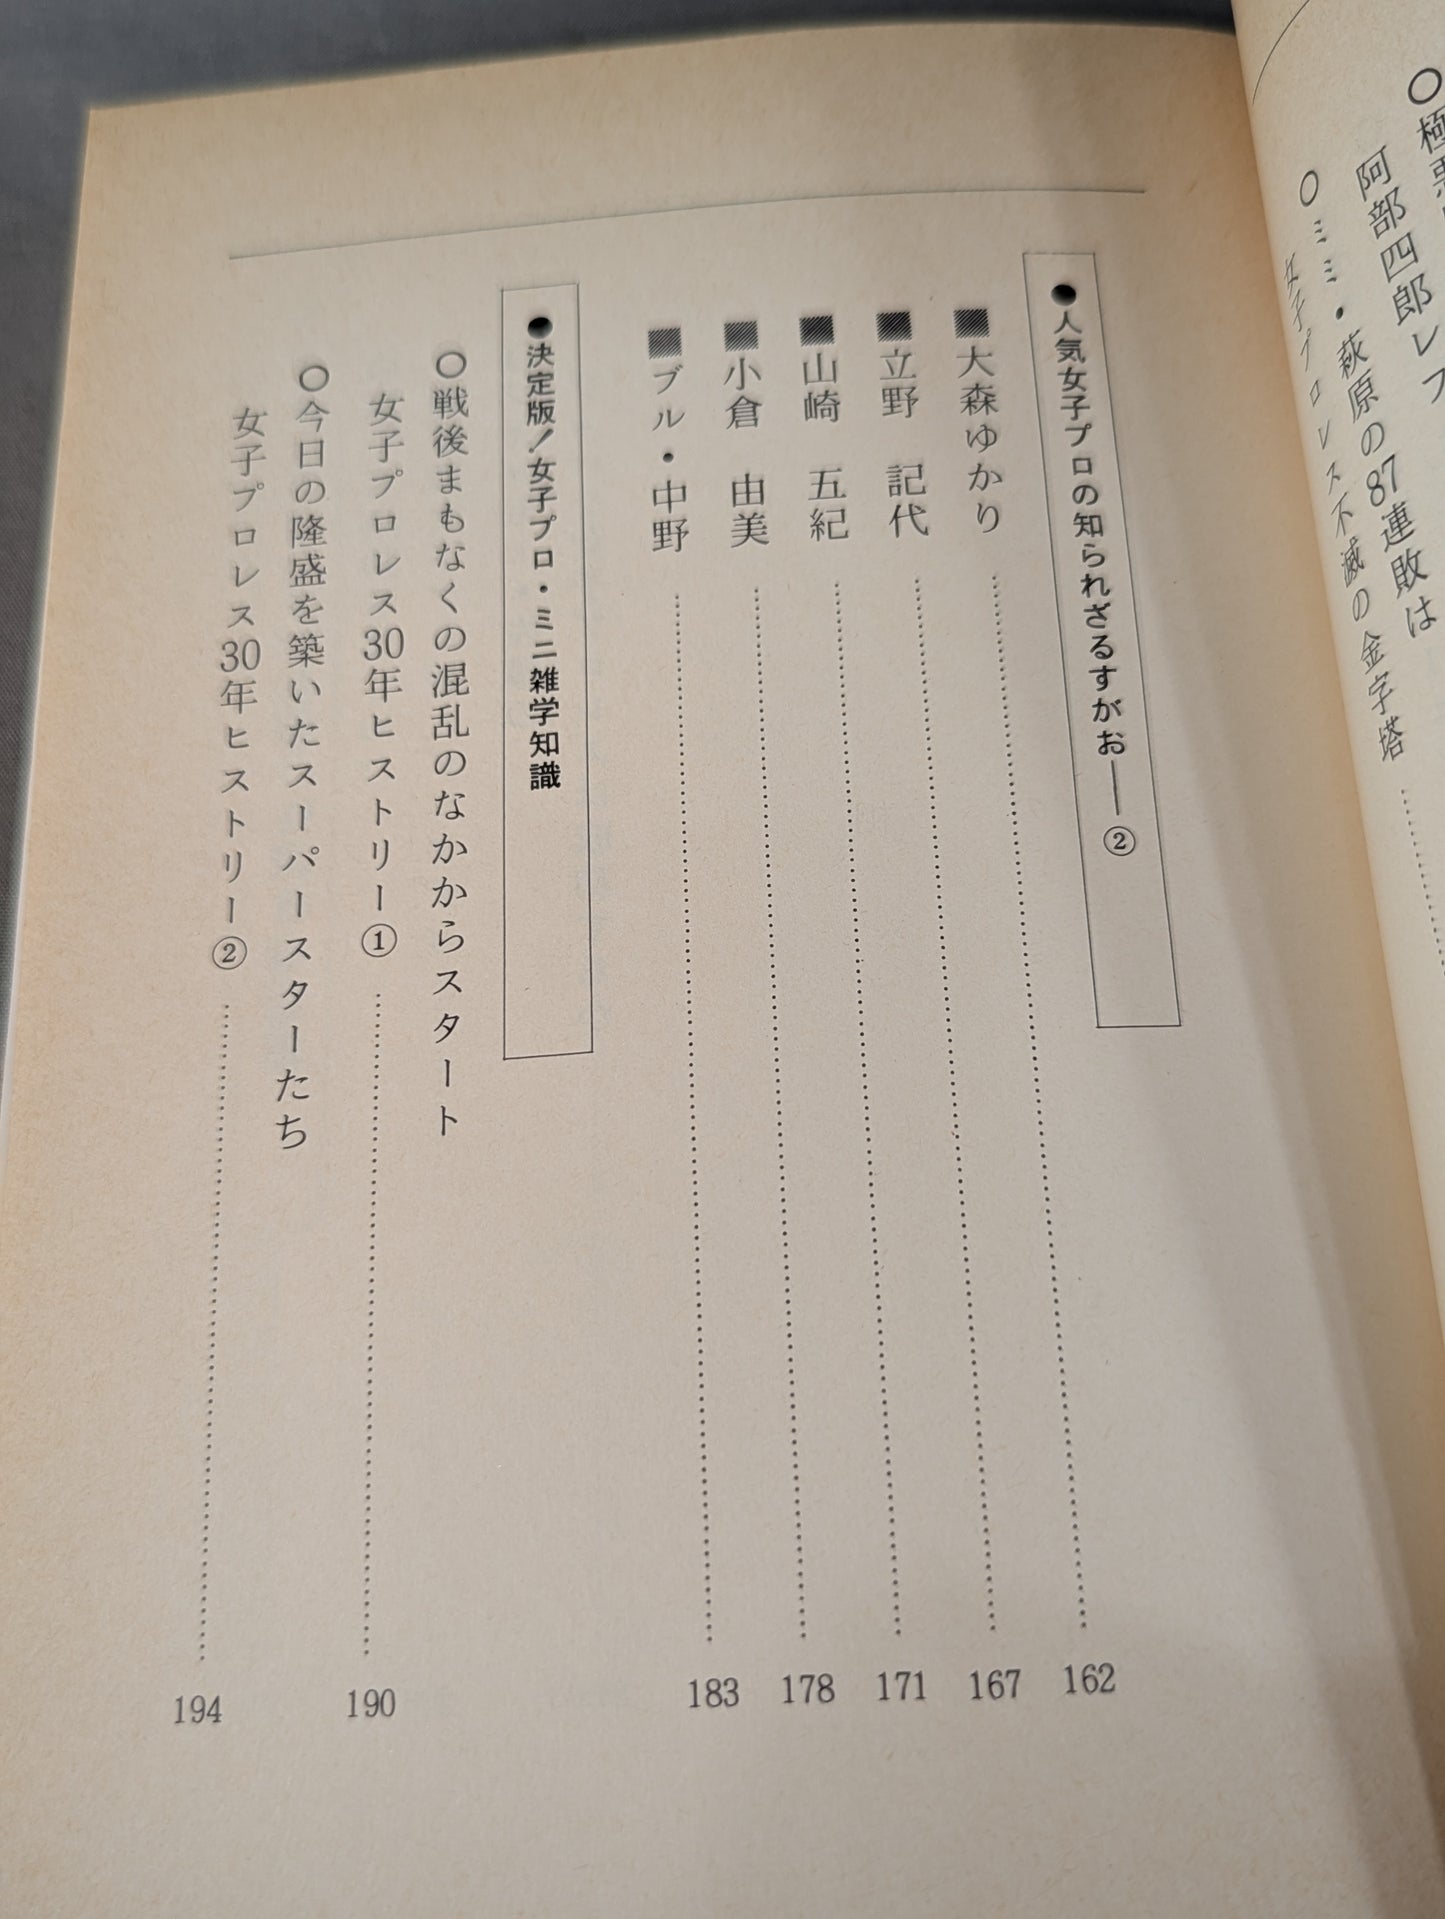 阿部四郎レフ
○ミミ・萩原の87連敗は
女子プロレス不滅の金字塔
●人気女子プロの知られざるすがお──②
大森ゆかり……162
立野 記代……167
山崎 五紀……171
小倉 由美……178
ブル・中野……183
●決定版！女子プロ・ミニ雑学知識
○戦後まもなくの混乱のなかからスタート
女子プロレス30年ヒストリー①……190
○今日の隆盛を築いたスーパースターたち
女子プロレス30年ヒストリー②……194